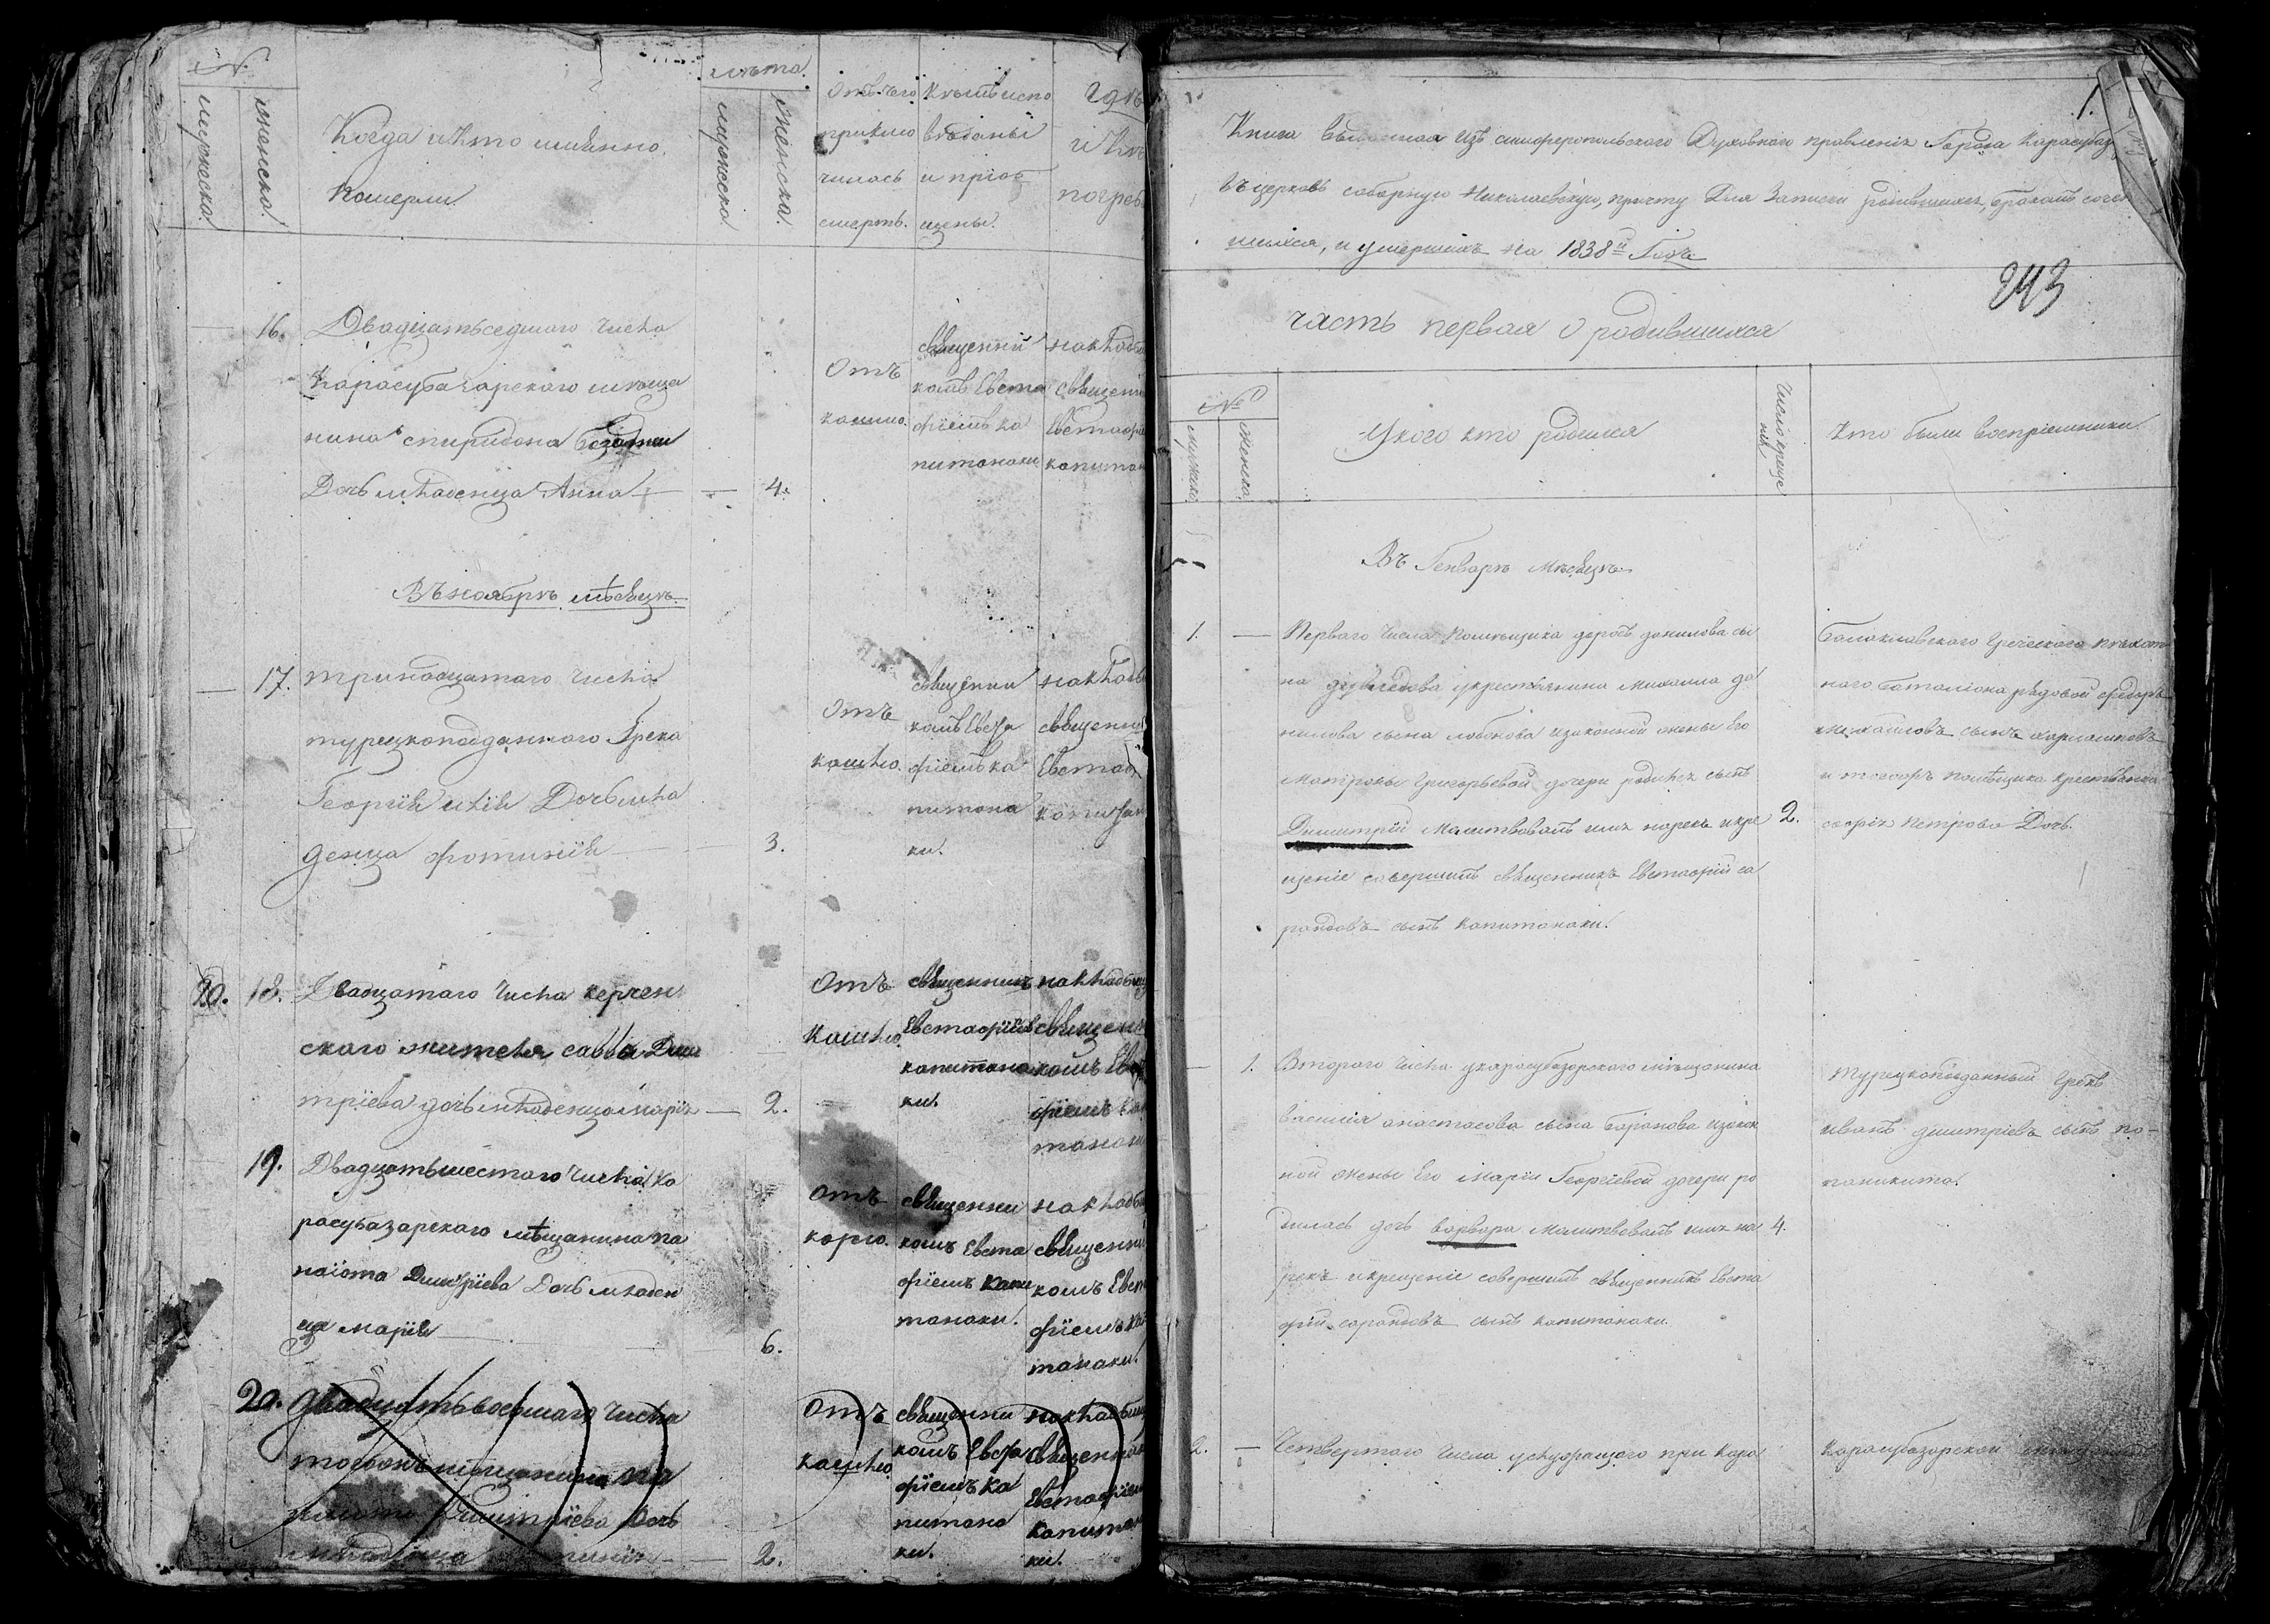 №
мужеска.
женска.
Когда и кто именно
померли
лѣта.
мужеска
женска.
Отъ чего
приклю
чилась
смерть.
Кѣмъ испо
вѣданы
и приоб
щены.
гдѣ
и кѣ
погреб
16.
Двадцать седмаго числа
Карасубазарского мѣща
нина спиридона
Дочь младенца Анна
4.
Отъ
кашлю.
священни
комъ Евста
фіемъ ка
питонаки
на кладб
священи
Евстафі
капитан
Въ ноябрѣ мѣсяцѣ.
17.
тринадцатаго числа
турецкоподданного Грека
Георгія иліи Дочь мла
денца фотинія
3.
Отъ
кашлю.
священни
комъ Евста
фіемъ ка
питона
ки.
на кладб
священи
Евстаф
капитан
20.
18.
Двадцатаго числа керчен
ского жителя савва Дими
тріева дочь младенца марія
2.
Отъ
кашлю.
священникъ
Евстафіем
капитана
ки.
на кладби
священ
комъ Ев
фіемъ ка
танаки
19.
Двадцать шестаго числа Ка
расубазарского мѣщанина па
наіота Димтріева Дочь младен
ца марія
6.
Отъ
корю.
священни
комъ Евста
фіемъ капи
танаки.
на кладби
священни
комъ Евст
фіемъ ка
танаки.
20.
двадцать восьмаго числа
тогожъ мѣщанина па
наіота Димитріева Дочь
младенца
2.
Отъ
кашлю
священни
комъ Евста
фіемъ ка
питана
ки.
на кладбищ
священни
Евстафіем
капитан
ки.
1.
Книга выданная изъ симферопольского Духовного правленія Города Карасубаз
въ церковь соборную Николаевскую, причту Для Записки родившихся, бракомъ соче
шихся, и умершихъ на 1838й Годъ
243
часть первая о родившихся
№
Мужеска
Женска
У кого кто родился
Число креще
нія
Кто были воспріемники
Въ Генварѣ Мѣсяцѣ
1.
Перваго числа помѣщика
на укрестьянина михаила да
нилова сына лобкова изаконной жены Его
Матроны Григорьевой дочери родился сынъ
Димитрій Молитвовалъ имя нарекъ икре
щеніе совершилъ священникъ Евстафій са
рандовъ сынъ капитонаки.
2.
балаклавского Греческого пѣхот
наго баталіона рядовой федоръ
михаиловъ сынъ
и помѣщика крестьянка
софія петрова Дочь.
1.
Втораго числа укарасубазарского мѣщанина
василія анастасова сына баранова изакон
ной жены Его маріи Георгіевой дочери ро
дилась дочь варвара Молитвовалъ имя на
рекъ икрещеніе совершилъ священникъ Евста
фій сарандовъ сынъ капитонаки.
4.
турецкоподданный Грекъ
иванъ дмитріевъ сынъ по-
паникита.
2.
Четвертаго числа услужащаго при кара
Карасубазарской